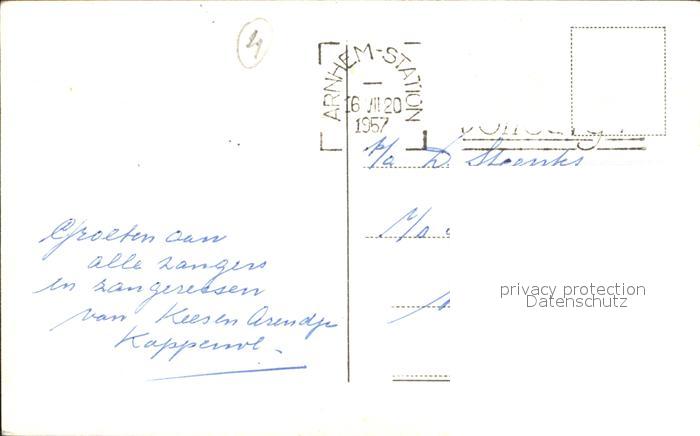 24
ARNHEM-STATION
16 VII 20
1957
p/a D.
Groeten aan
alle zangers
en zangeressen
van Kees en Arendje
privacy protection
Datenschutz